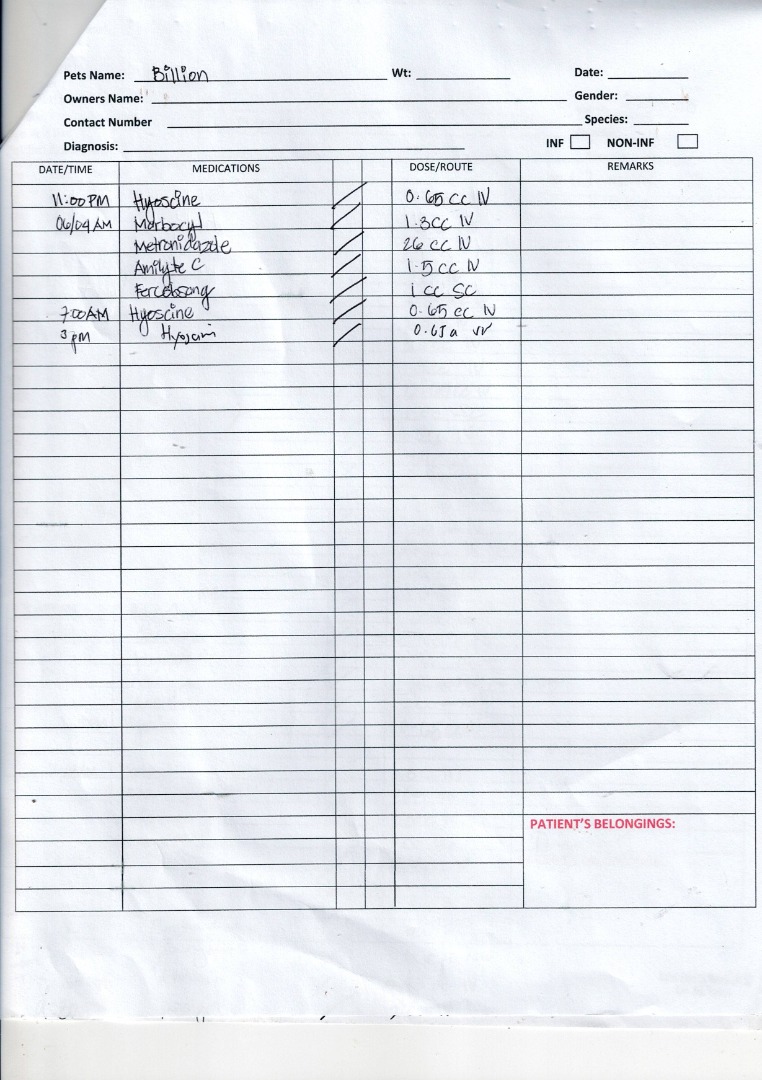 Pets Name: Billion Wt: Date:
Owners Name: Gender:
Contact Number Species:
Diagnosis: INF NON-INF
DATE/TIME MEDICATIONS DOSE/ROUTE REMARKS
11:00 PM Hyoscine 0.65 cc IV
06/04 AM Marbocyl 1.3cc IV
Metronidazole 26 cc IV
Amilyte C 1.5 cc IV
1 cc SC
7:00AM Hyoscine 0.65 cc IV
3 PM
PATIENT'S BELONGINGS: